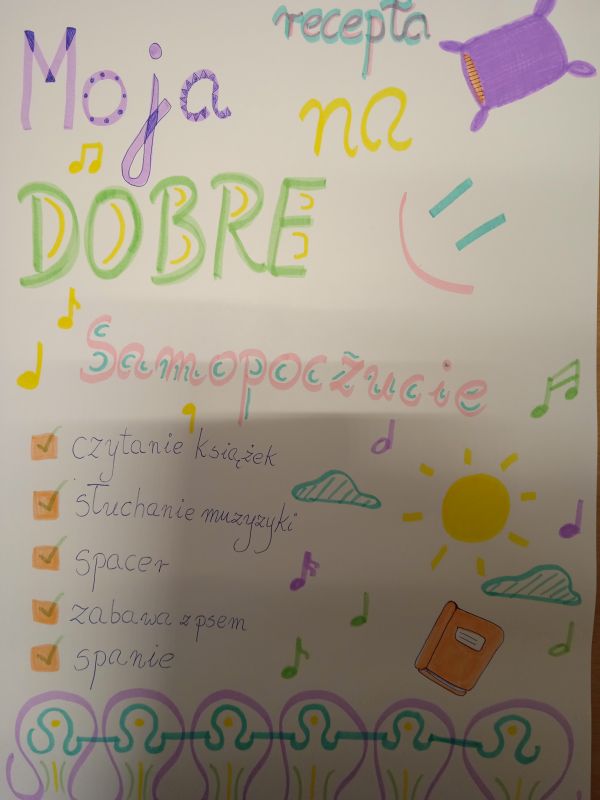 Moja
recepta
na
DOBRE
Samopoczucie
czytanie książek
słuchanie muzyzyki
spacer
zabawa z psem
spanie